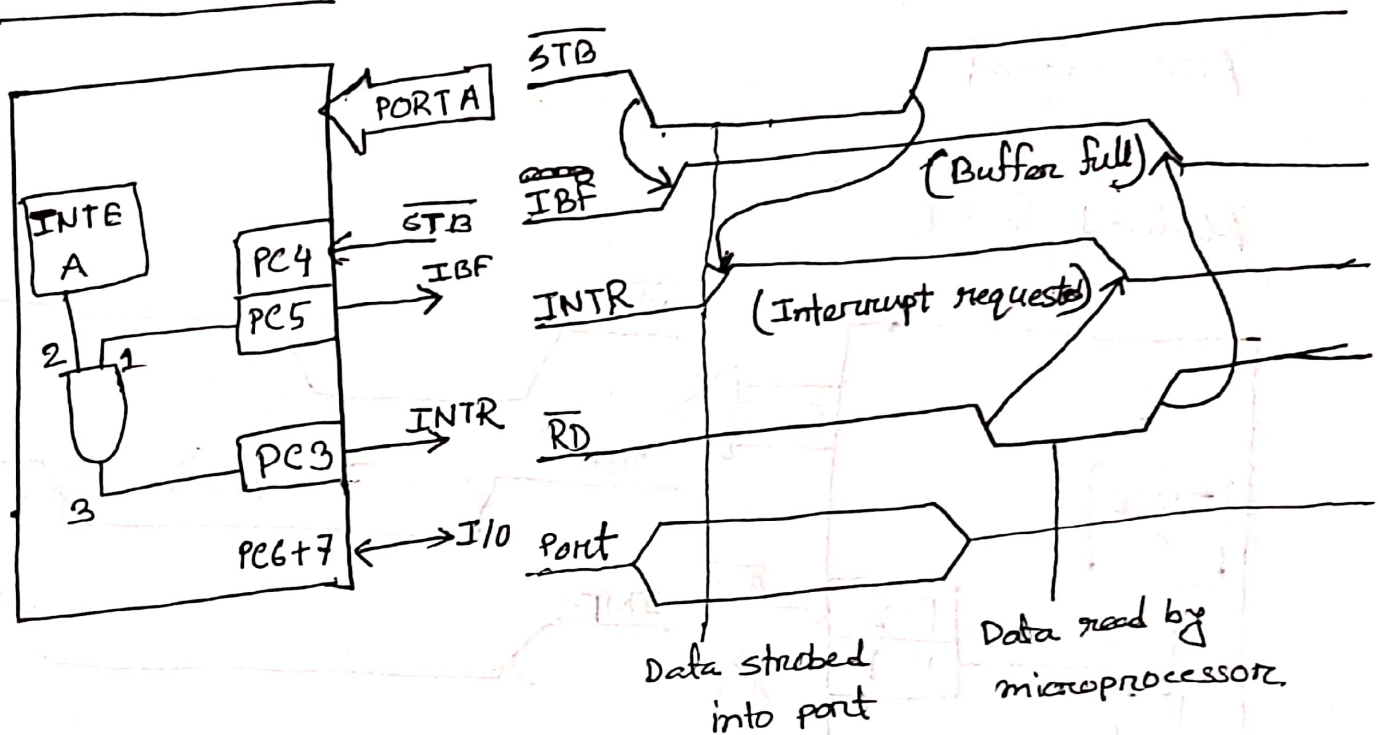 PORT A
INTE
A
STB
PC4
IBF
PC5
2
1
INTR
PC3
3
PC6+7
I/O
STB
(Buffer full)
IBF
INTR
(Interrupt requested)
RD
Port
Data strobed
into port
Data read by
microprocessor.